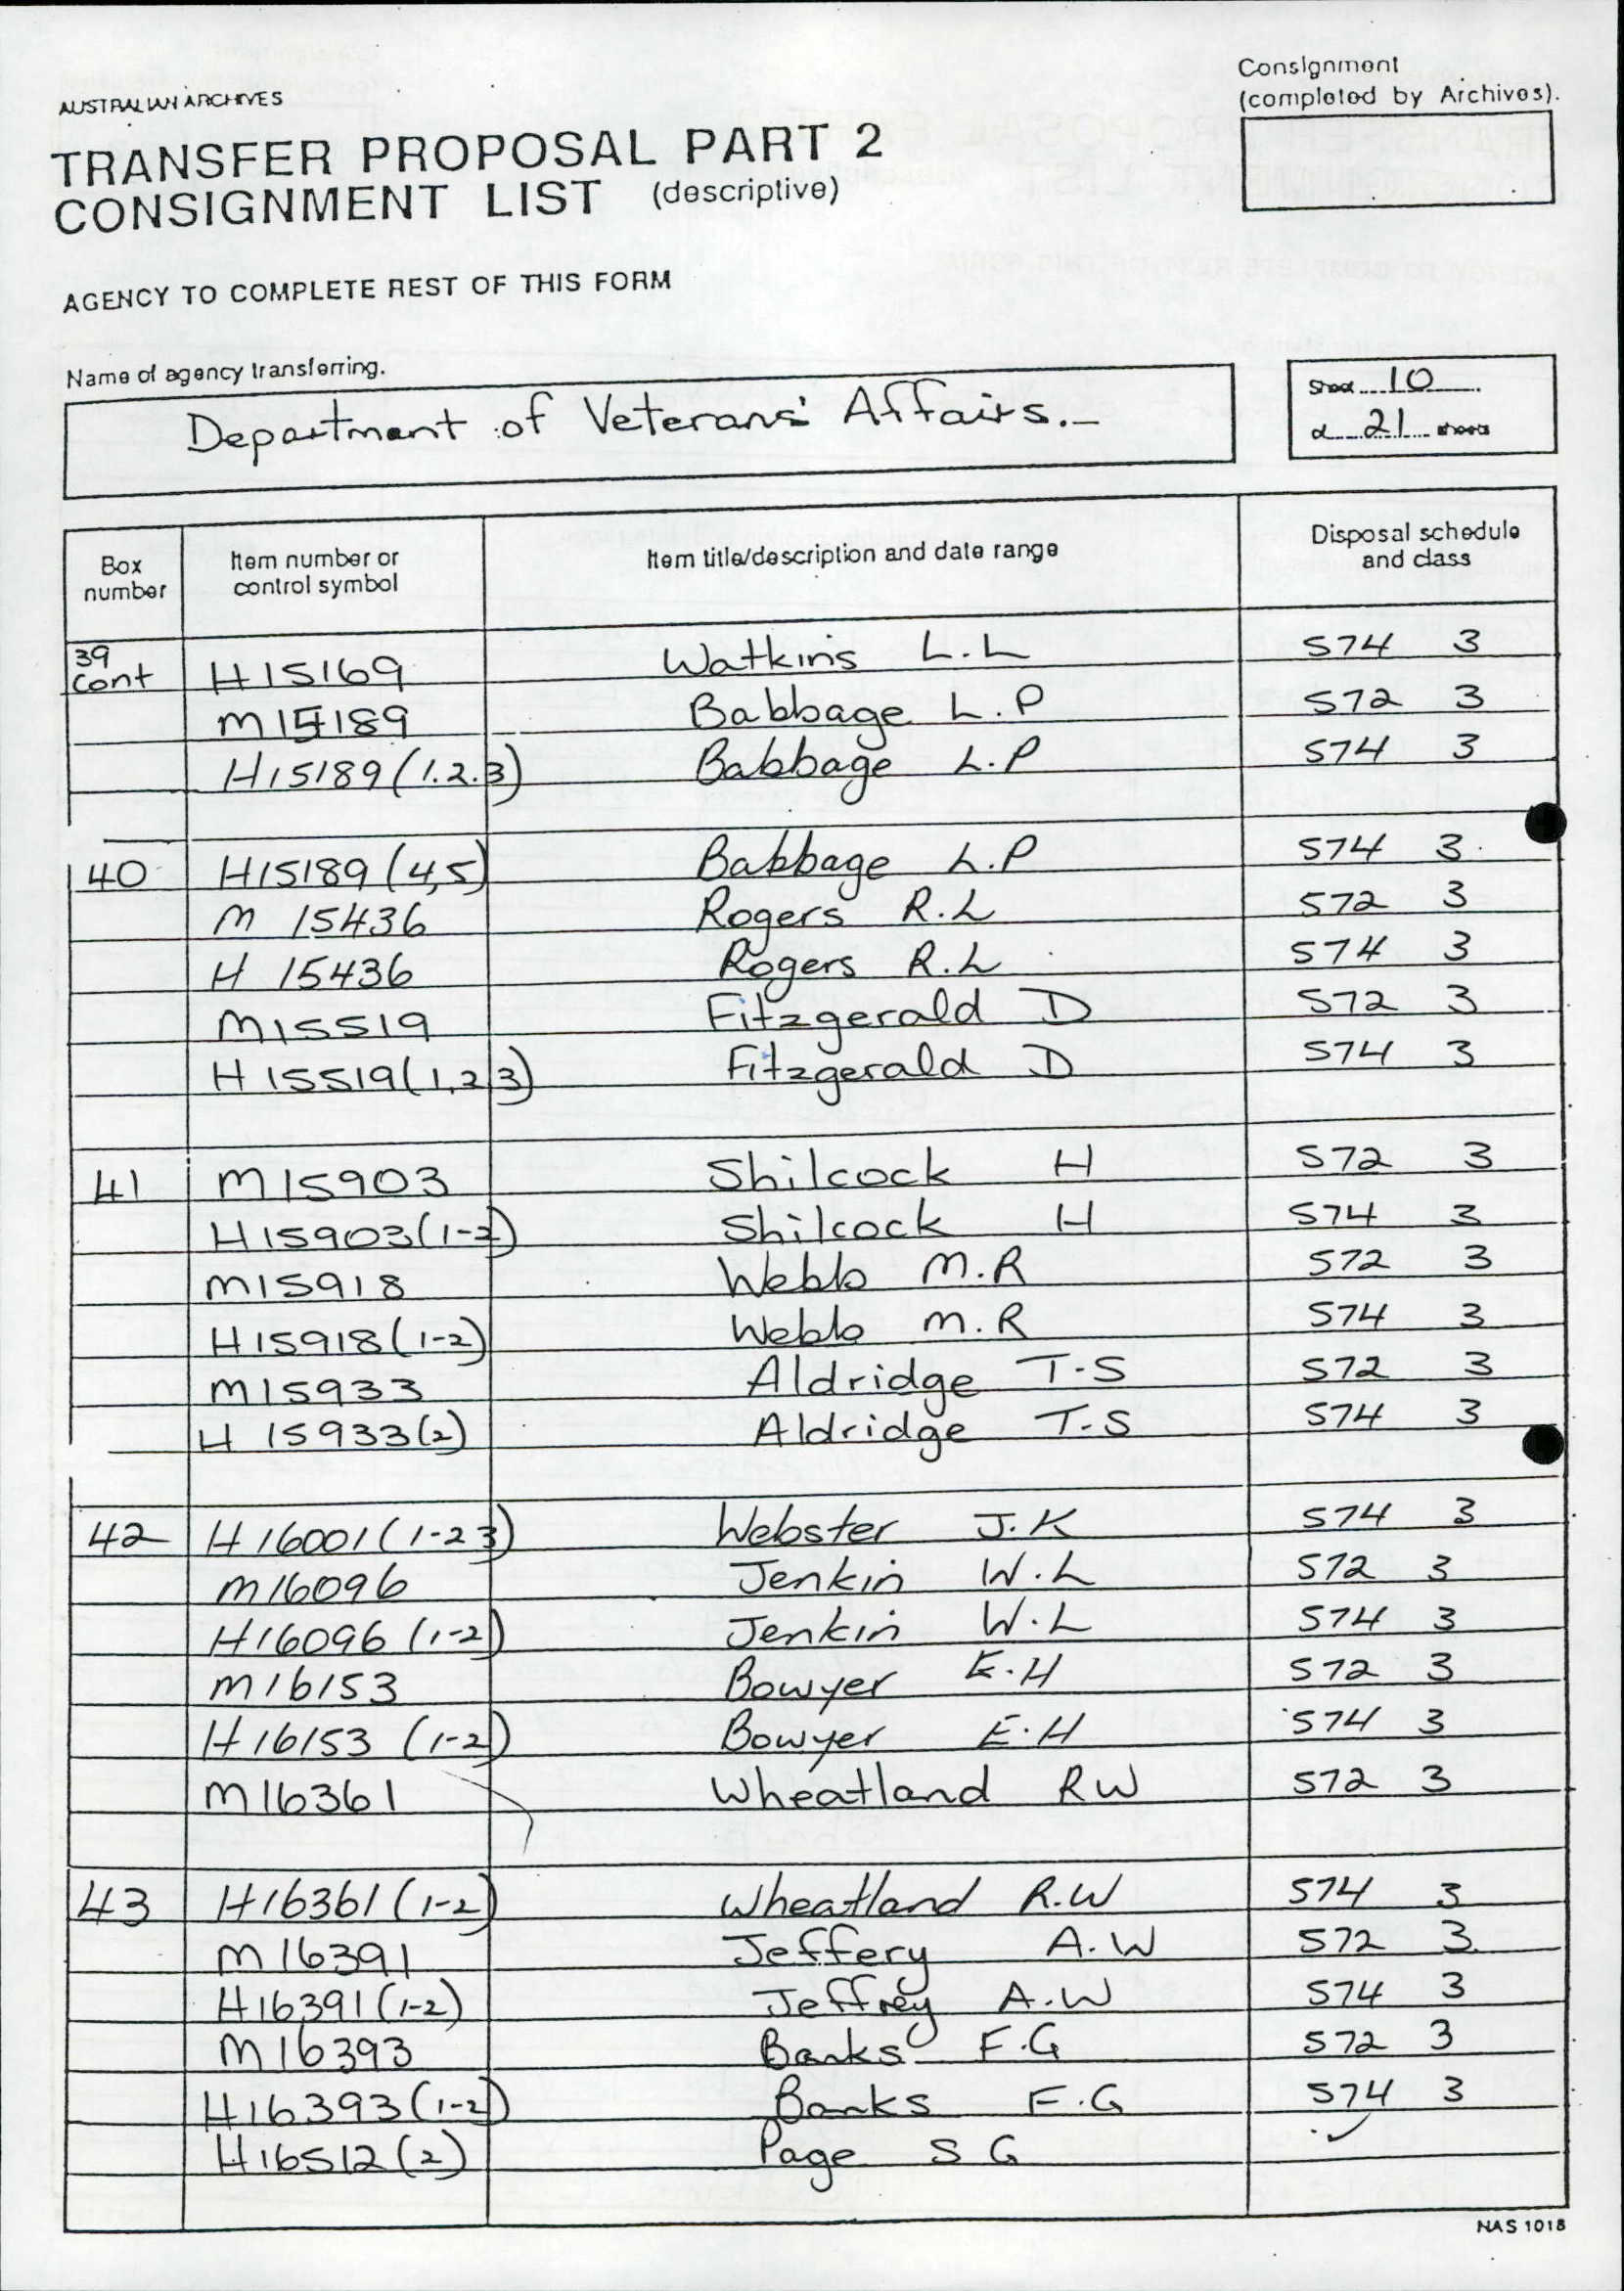 Consignment
(completed by Archives).
AUSTRALIAN ARCHIVES
TRANSFER PROPOSAL PART 2
CONSIGNMENT LIST (descriptive)
AGENCY TO COMPLETE REST OF THIS FORM
Name of agency transferring.
Department of Veterans' Affairs.-
Sheet 10
of 21 sheets
Box number
Item number or control symbol
Item title/description and date range
Disposal schedule and class
39 Cont H15169 Watkins L.L 574 3
M15189 Babbage L.P 572 3
H15189(1.2.3) Babbage L.P 574 3
40 H15189(4,5) Babbage L.P 574 3
M 15436 Rogers R.L 572 3
H 15436 Rogers R.L 574 3
M15519 Fitzgerald D 572 3
H15519(1,2,3) Fitzgerald D 574 3
41 M15903 Shilcock H 572 3
H15903(1-2) Shilcock H 574 3
M15918 Webb M.R 572 3
H15918(1-2) Webb M.R 574 3
M15933 Aldridge T.S 572 3
H 15933(2) Aldridge T.S 574 3
42 H16001(1-2 3) Webster J.K 574 3
M16096 Jenkin W.L 572 3
H16096(1-2) Jenkin W.L 574 3
M16153 Bowyer E.H 572 3
H16153 (1-2) Bowyer E.H 574 3
M16361 Wheatland RW 572 3
43 H16361(1-2) Wheatland R.W 574 3
M16391 Jeffery A.W 572 3
H16391(1-2) Jeffrey A.W 574 3
M16393 Banks F.G 572 3
H16393(1-2) Banks F.G 574 3
H16512(2) Page S G
NAS 1018